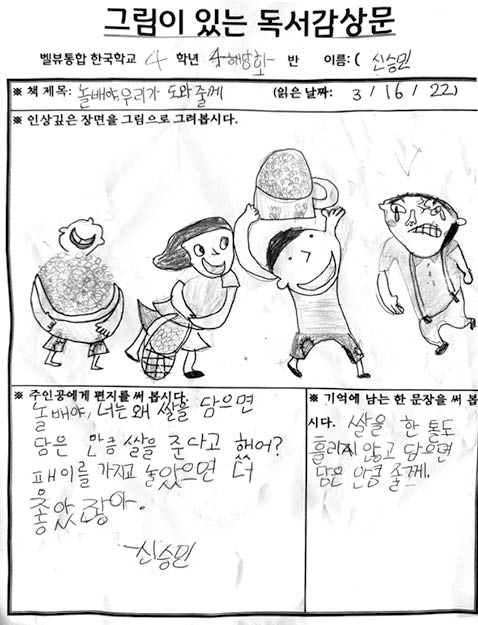 그림이 있는 독서감상문
벨뷰통합 한국학교 4 학년 해당화 반 이름: ( 신승민
※ 책 제목: 놀배야 우리가 도와줄께 (읽은 날짜: 3 / 16 / 22)
※ 인상깊은 장면을 그림으로 그려봅시다.
※ 주인공에게 편지를 써 봅시다.
놀배야, 너는 왜 쌀을 담으면
담은 만큼 쌀을 준다고 했어?
가지고 놀았으면 더
좋았잖아.
신승민
※ 기억에 남는 한 문장을 써 봅
시다. 쌀을 한 톨도
흘리지 않고 담으면
담은 만큼 줄께.